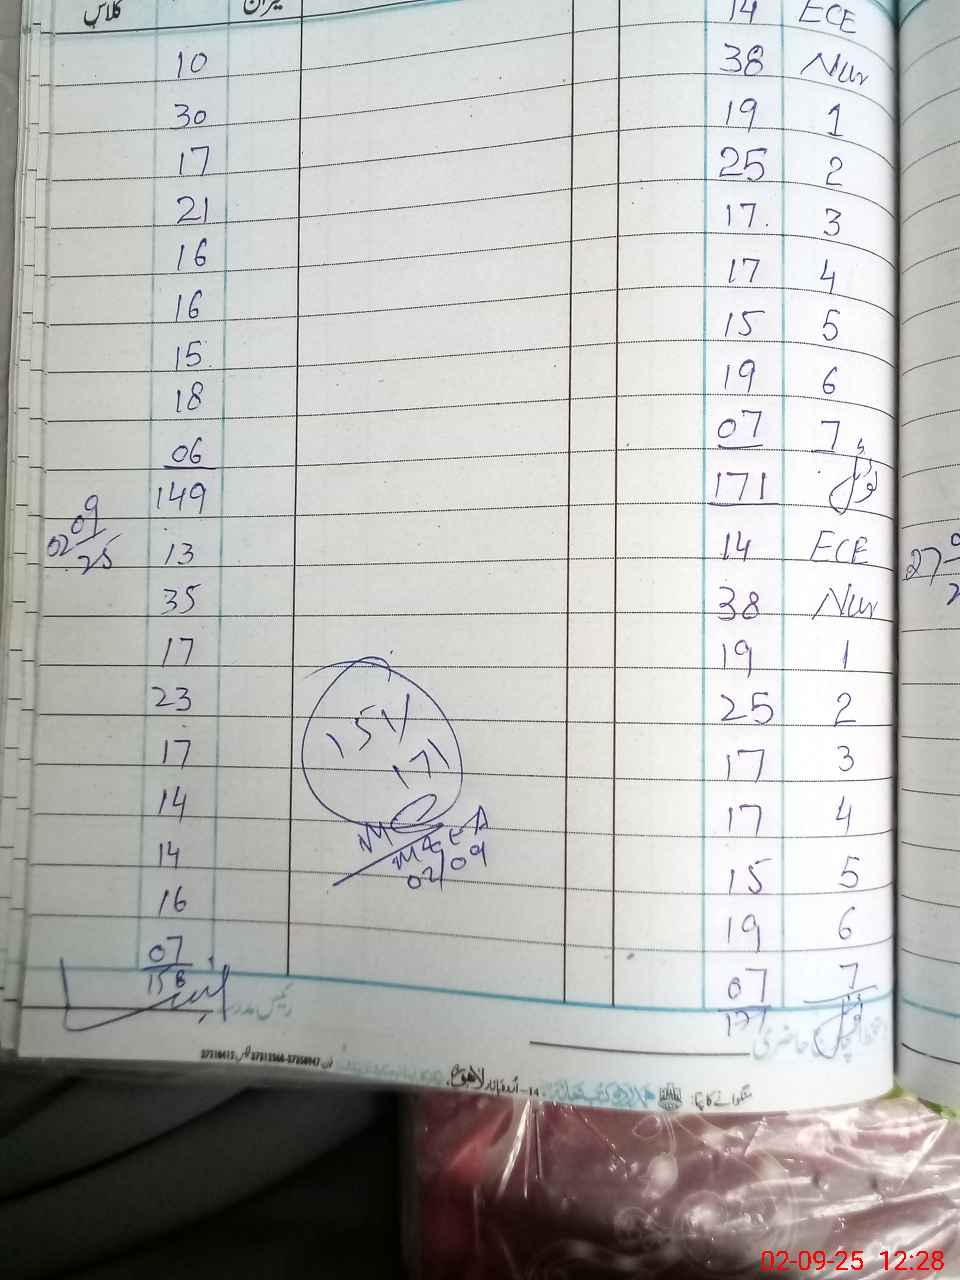 کلاس میزان
14 ECE
10 38 Nur
30 19 1
17 25 2
21 17 3
16 17 4
16 15 5
15 19 6
18 07 7
06 171 ٹوٹل
149
02/09/25 13 14 ECE
35 38 Nur
17 19 1
23 25 2
17 17 3
14 17 4
14 15 5
16 19 6
07 07 7
158 171 ٹوٹل
151/
171
MEA
02/09
رئیس مدرسہ
حاضری
اردو بازار لاہور
27
02-09-25 12:28